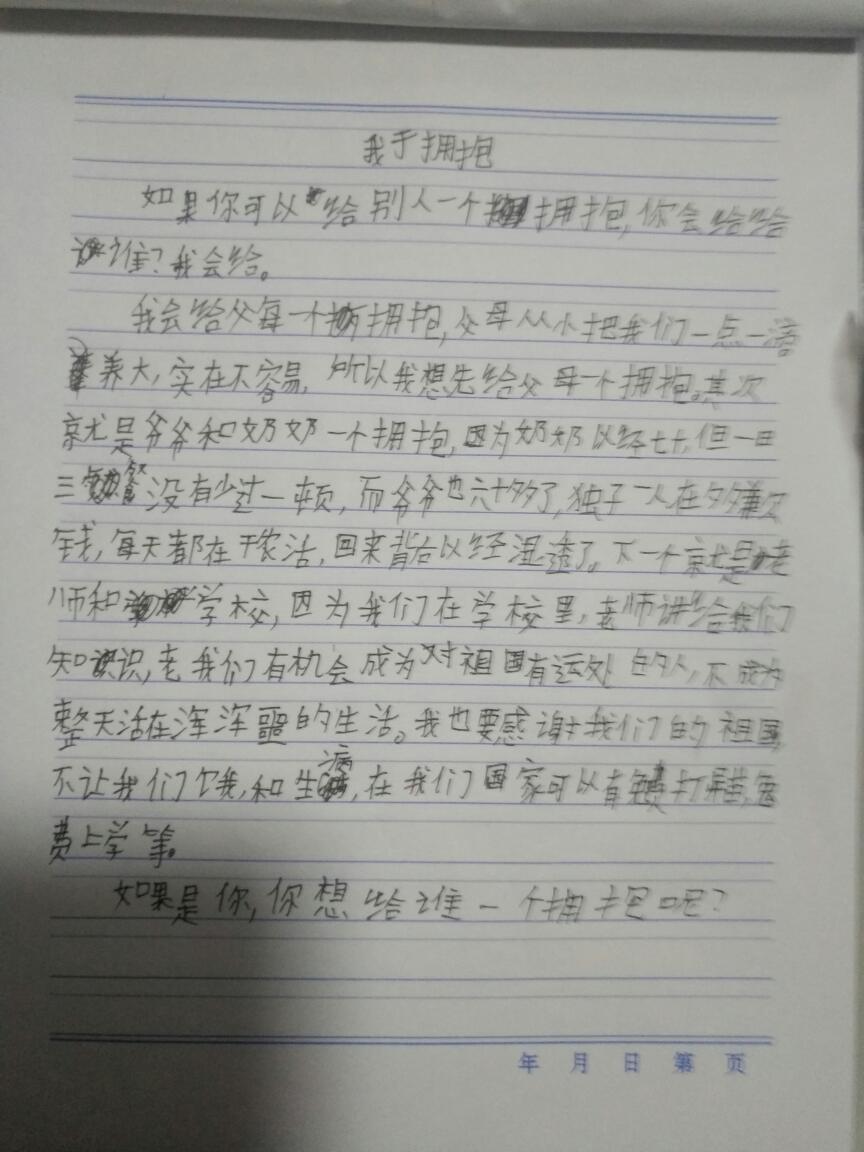 我于拥抱
如果你可以给别人一个拥抱,你会给给
谁?我会给。
我会给父每一个拥抱,父母从小把我们一点一滴
养大,实在不容易,所以我想先给父母一个拥抱。其次
就是爷爷和奶奶一个拥抱,因为奶奶以经七十,但一日
三餐没有少过一顿,而爷爷也六十多了,独子一人在外赚
钱,每天都在干农活,回来背后以经湿透了。下一个就是老
师和学校,因为我们在学校里,老师讲给我们
知识,老我们有机会成为对祖国有运处的人,不成为
整天活在浑浑噩的生活。我也要感谢我们的祖国
不让我们饿,和生病,在我们国家可以有免费打屏苗,免
费上学等。
如果是你,你想给谁一个拥抱呢?
年 月 日 第 页